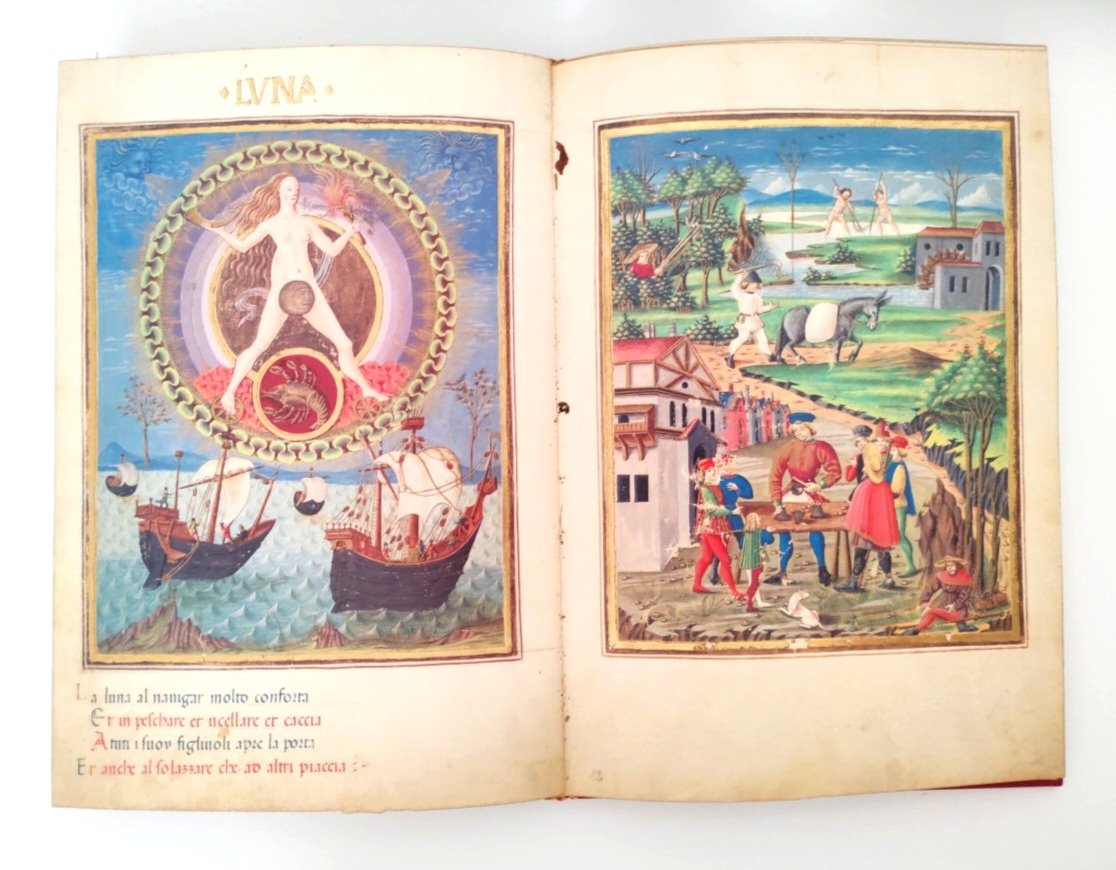 · LVNA ·
La luna al nauigar molto conforta
Et in peschare et ucellare et caccia
A tuti i suoy figluuoli apre la porta
Et anche al solazzare che ad altri piaccia :~